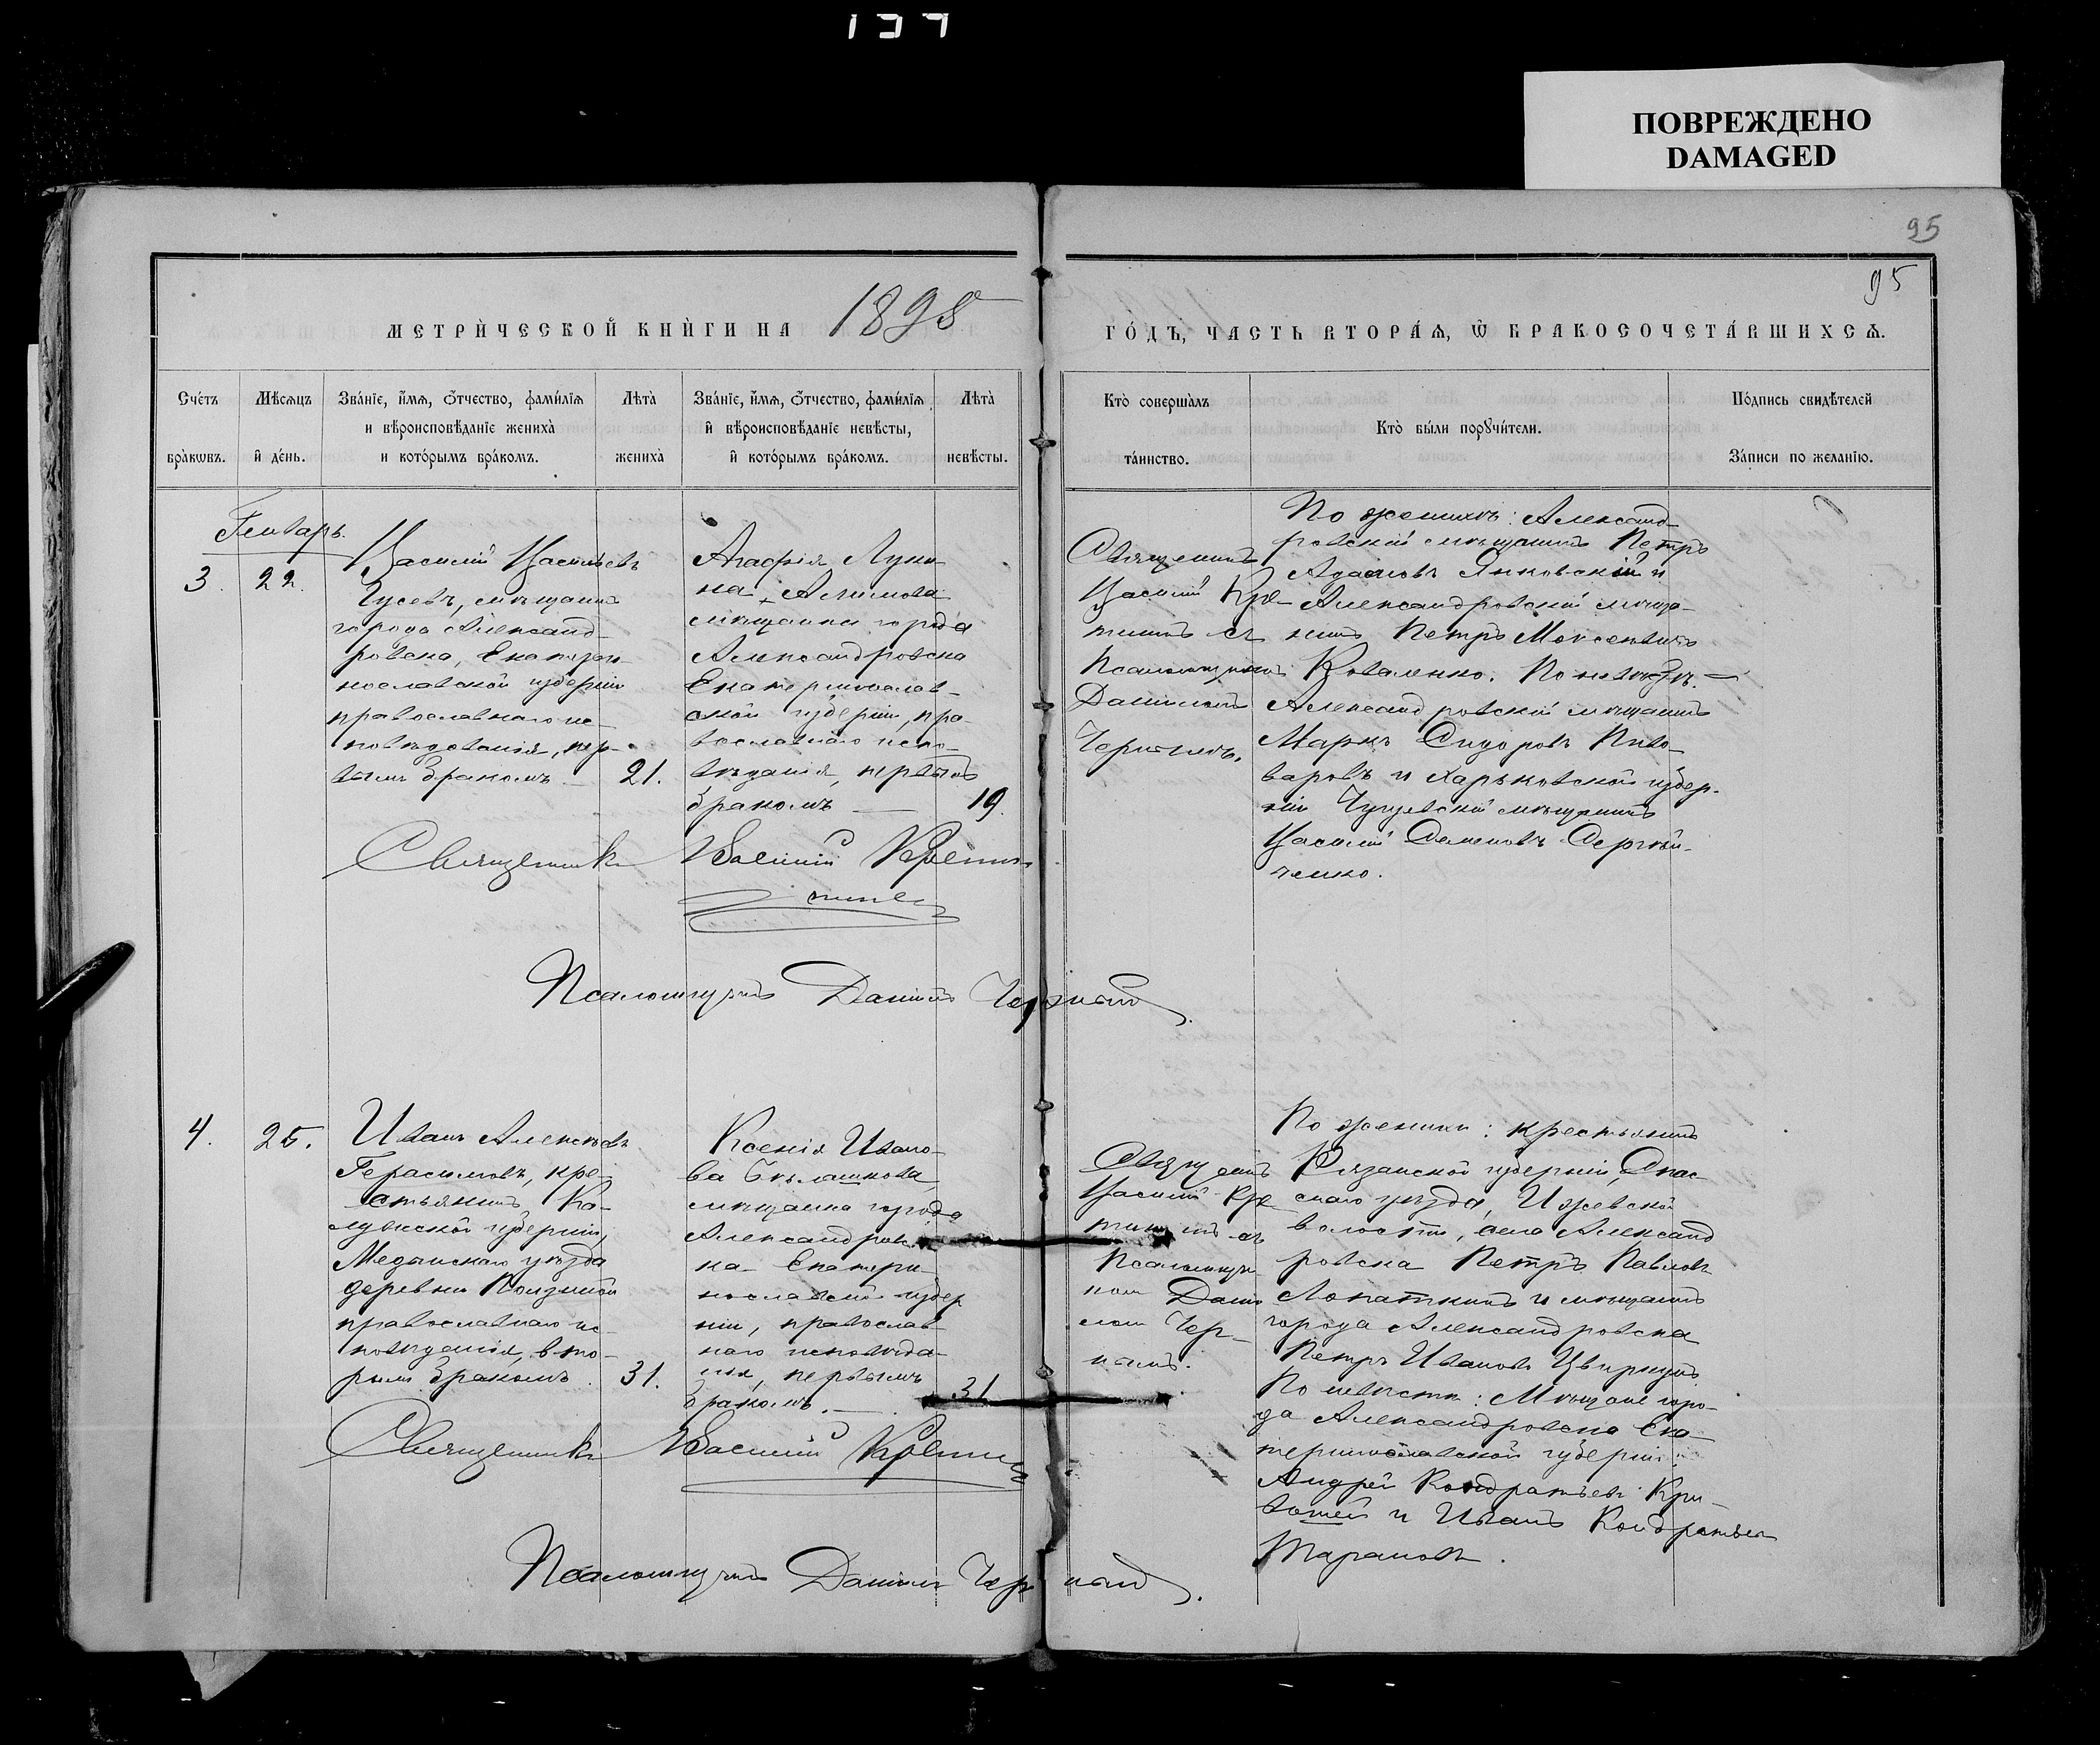 ПОВРЕЖДЕНО
DAMAGED
95
95
МЕТРИ́ЧЕСКОЙ КНИ́ГИ НА 1898
ГО́ДЪ, ЧАСТЬ ВТОРА́Ѧ, Ѡ БРАКОСОЧЕТА́ВШИХСѦ.
Сче́тъ бра́кѡвъ.
Мѣ́сѧцъ и҆ де́нь.
Зва́нїе, и҆́мѧ, ѻ҆́тчество, фами́лїѧ
и вѣроисповѣ́данїе жениха̀
и кото́рымъ бра́комъ.
Лѣта̀ жениха̀
Зва́нїе, и҆́мѧ, ѻ҆́тчество, фами́лїѧ
и҆ вѣроисповѣ́данїе невѣ́сты,
и҆ кото́рымъ бра́комъ.
Лѣта̀ невѣ́сты.
Кто̀ соверша́лъ
та́инство.
Кто̀ бы́ли порꙋчи́тели.
По́дпись свидѣ́телей
За́писи по жела́нїю.
Генварь
3. 22.
Василій Васильевъ
Гусевъ, мѣщанинъ
города Александ-
ровска, Екатери-
нославской губерніи
православнаго ис-
повѣдованія, пер-
вымъ бракомъ – 21.
Агафія Луки-
на Алимова
мѣщанка города
Александровска
Екатеринослав-
ской губерніи, пра-
вославнаго испо-
вѣданія, первымъ
бракомъ — 19.
Священникъ
Василій Кре-
тининъ съ
Псаломщикомъ
Даніиломъ
Чернымъ.
По женихѣ: Александ-
ровскій мѣщанинъ Петръ
Адамовъ Янковскій и
Александровскій мѣща-
нинъ Петръ Моисеевичъ
Коваленко. По невѣстѣ: —
Александровскій мѣщанинъ
Маркъ Сидоровъ Пиво-
варовъ и Харьковской губер-
ніи Чугуевскій мѣщанинъ
Василій Семеновъ Сергѣй-
ченко.
Священникъ Василій Крети-
нинъ
Псаломщикъ Даніилъ Черный
4. 25.
Иванъ Алексѣевъ
Герасимовъ, кре-
стьянинъ Ка-
лужской губерніи,
Медынскаго уѣзда
деревни
православнаго ис-
повѣданія, вто-
рымъ бракомъ. 31.
Ксенія Ивано-
ва
мѣщанка города
Александровс-
ка Екатери-
нославской губер
ніи, православ-
наго исповѣда-
нія, первымъ
бракомъ. — 31
Священникъ
Василій Кре
тининъ съ
Псаломщи-
комъ Дані-
ломъ Чер-
нымъ.
По женихѣ: крестьянинъ
Рязанской губерніи, Спас-
скаго уѣзда, Ижевской
волости, села Александ
ровска Петръ Павловъ
Лопаткинъ и мѣщанинъ
города Александровска
Петръ Ивановъ Цвиркунъ
По невѣстѣ: Мѣщане горо-
да Александровска Ека-
теринославской губерніи:
Андрей Кондратьевъ Кри-
вошей и Иванъ Кондратьевъ
Тарановъ.
Священникъ Василій Кретининъ
Псаломщикъ Даніилъ Черный.